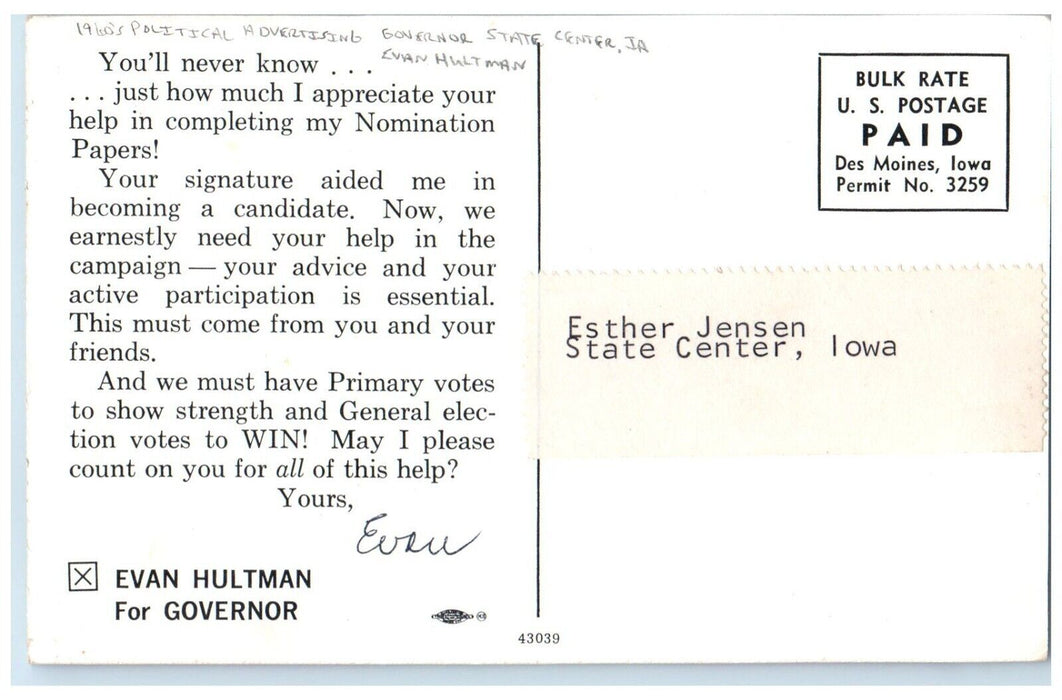 1960'S POLITICAL ADVERTISING GOVERNOR STATE CENTER, IA
EVAN HULTMAN
You'll never know . . .
. . . just how much I appreciate your
help in completing my Nomination
Papers!
Your signature aided me in
becoming a candidate. Now, we
earnestly need your help in the
campaign — your advice and your
active participation is essential.
This must come from you and your
friends.
And we must have Primary votes
to show strength and General elec-
tion votes to WIN! May I please
count on you for all of this help?
Yours,
Evan
EVAN HULTMAN
For GOVERNOR
43039
BULK RATE
U. S. POSTAGE
PAID
Des Moines, Iowa
Permit No. 3259
Esther Jensen
State Center, Iowa